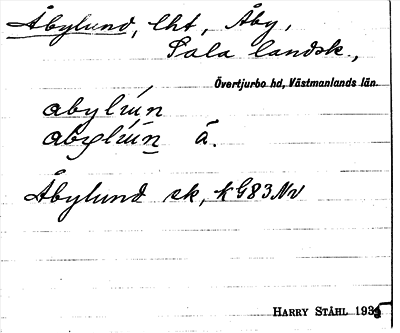 Åbylund, lht, Åby,
Sala landsk.,
Övertjurbo hd, Västmanlands län.
abylún
abylún å.
Åbylund ek, kG83Nv
HARRY STÅHL 1935